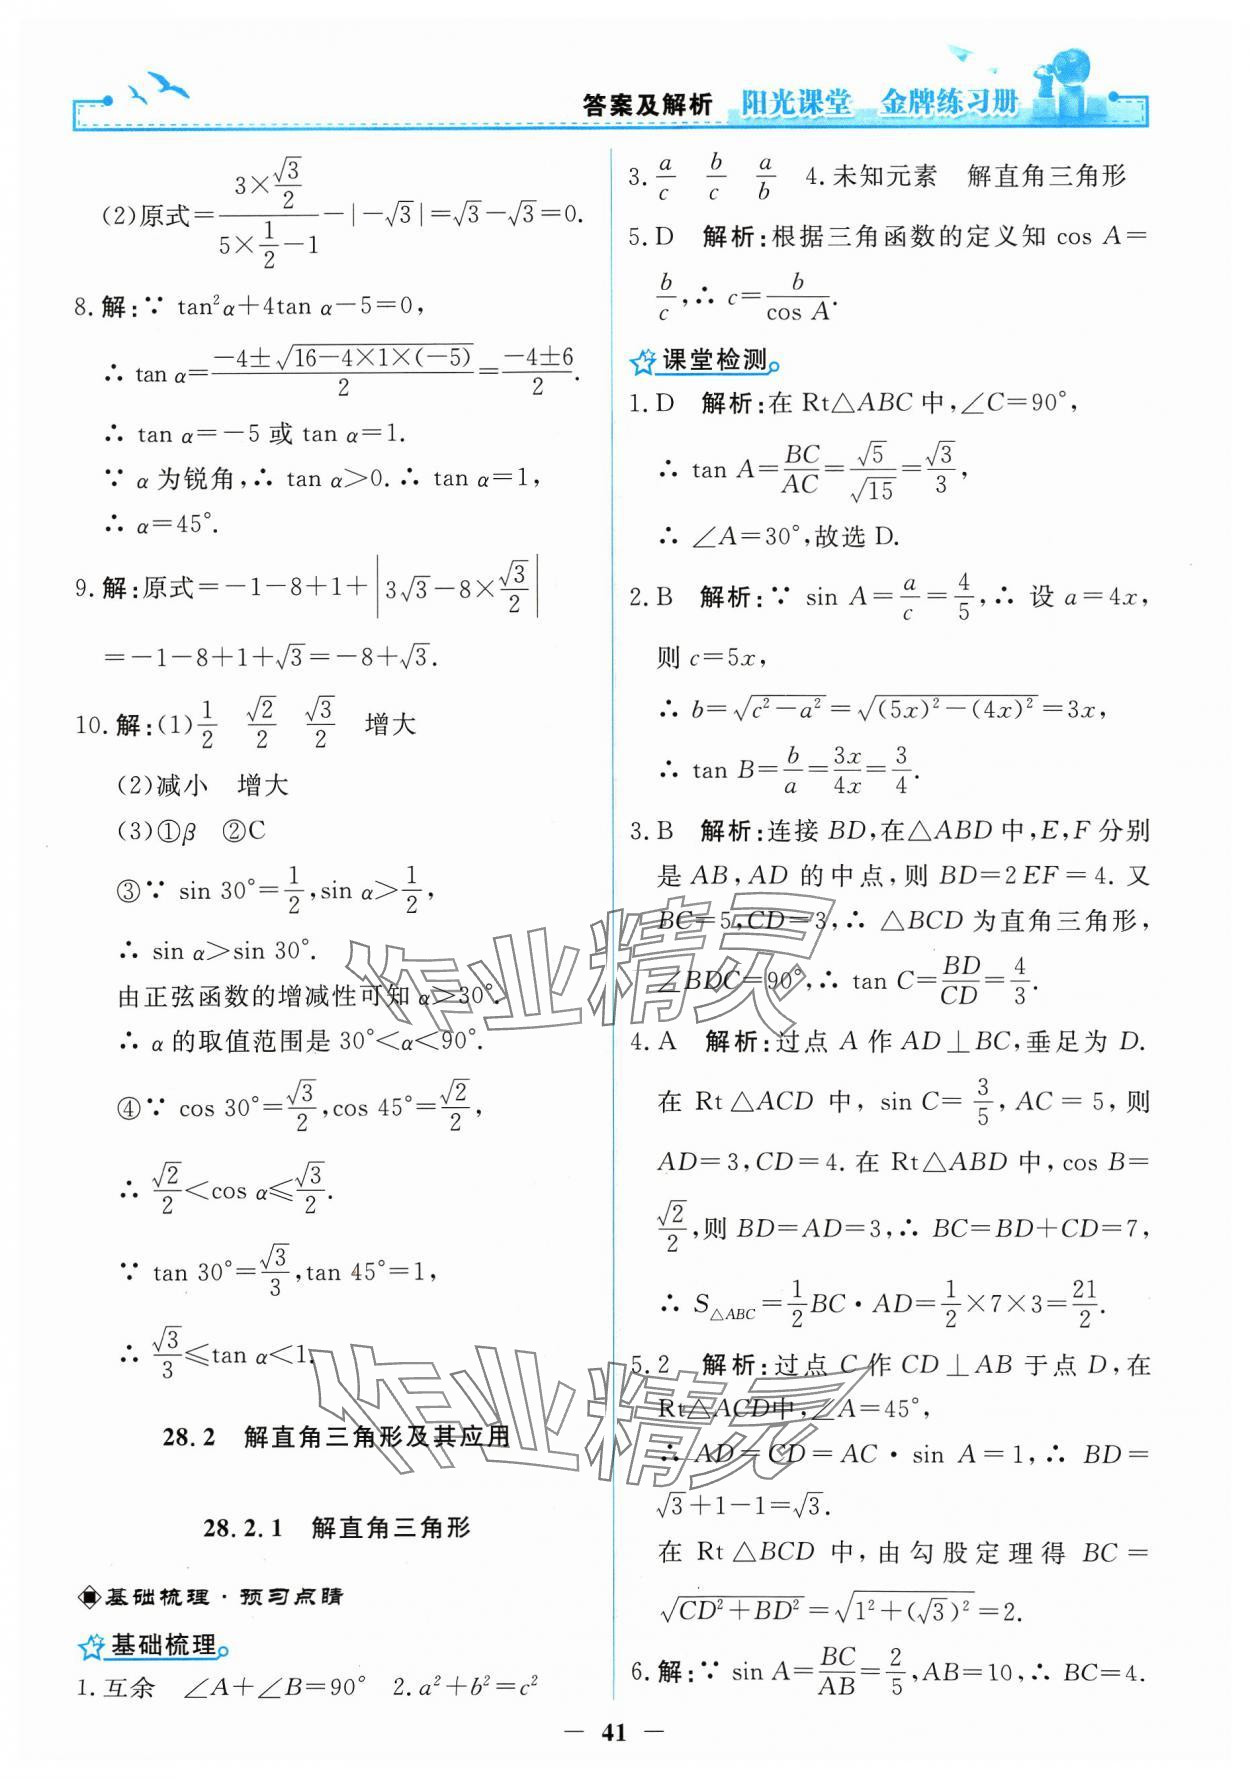 答案及解析 阳光课堂 金牌练习册
(2)原式=(3×√3/2)/(5×1/2-1)-|-√3|=√3-√3=0.
8.解:∵ tan²α+4tan α-5=0,
∴ tan α=(-4±√(16-4×1×(-5)))/2=(-4±6)/2.
∴ tan α=-5 或 tan α=1.
∵ α 为锐角,∴ tan α>0.∴ tan α=1,
∴ α=45°.
9.解:原式=-1-8+1+|3√3-8×√3/2|
=-1-8+1+√3=-8+√3.
10.解:(1)1/2 √2/2 √3/2 增大
(2)减小 增大
(3)①β ②C
③∵ sin 30°=1/2,sin α>1/2,
∴ sin α>sin 30°.
由正弦函数的增减性可知 α>30°.
∴ α 的取值范围是 30°<α<90°.
④∵ cos 30°=√3/2,cos 45°=√2/2,
∴ √2/2<cos α≤√3/2.
∵ tan 30°=√3/3,tan 45°=1,
∴ √3/3≤tan α<1.
28.2 解直角三角形及其应用
28.2.1 解直角三角形
基础梳理·预习点睛
基础梳理
1.互余 ∠A+∠B=90° 2.a²+b²=c²
3.a/c b/c a/b 4.未知元素 解直角三角形
5.D 解析:根据三角函数的定义知 cos A=
b/c,∴ c=b/cos A.
课堂检测
1.D 解析:在 Rt△ABC 中,∠C=90°,
∴ tan A=BC/AC=√5/√15=√3/3,
∴ ∠A=30°,故选 D.
2.B 解析:∵ sin A=a/c=4/5,∴ 设 a=4x,
则 c=5x,
∴ b=√(c²-a²)=√((5x)²-(4x)²)=3x,
∴ tan B=b/a=3x/4x=3/4.
3.B 解析:连接 BD,在△ABD 中,E,F 分别
是 AB,AD 的中点,则 BD=2EF=4.又
BC=5,CD=3,∴ △BCD 为直角三角形,
∠BDC=90°,∴ tan C=BD/CD=4/3.
4.A 解析:过点 A 作 AD⊥BC,垂足为 D.
在 Rt△ACD 中,sin C=3/5,AC=5,则
AD=3,CD=4.在 Rt△ABD 中,cos B=
√2/2,则 BD=AD=3,∴ BC=BD+CD=7,
∴ S△ABC=1/2BC·AD=1/2×7×3=21/2.
5.2 解析:过点 C 作 CD⊥AB 于点 D,在
Rt△ACD中,∠A=45°,
∴ AD=CD=AC·sin A=1,∴ BD=
√3+1-1=√3.
在 Rt△BCD 中,由勾股定理得 BC=
√(CD²+BD²)=√(1²+(√3)²)=2.
6.解:∵ sin A=BC/AB=2/5,AB=10,∴ BC=4.
— 41 —
作业精灵
作业精灵